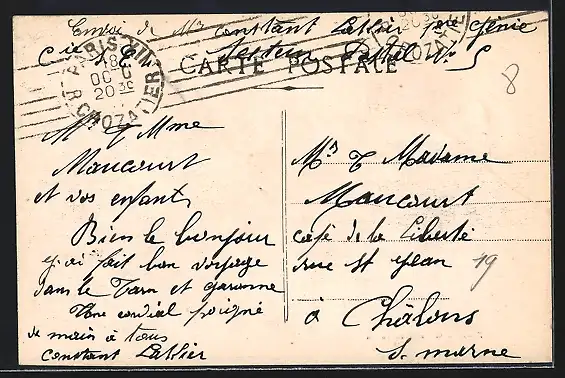 Envoi de Mr Constant Lassier 1er Génie
Cie S.E.M. Secteur Postal No 5
CARTE POSTALE
PARIS XII
18 OCT
20 30
R CROZATIER
8
Mr & Mme
Maucourt
et vos enfants
Bien le bonjour
j'ai fait bon voyage
dans le Tarn et garonne
Une cordial poigné
de main à tous
Constant Lassier
Mr & Madame
Maucourt
café de la Liberté
rue St Jean 19
à Châlons
s. marne